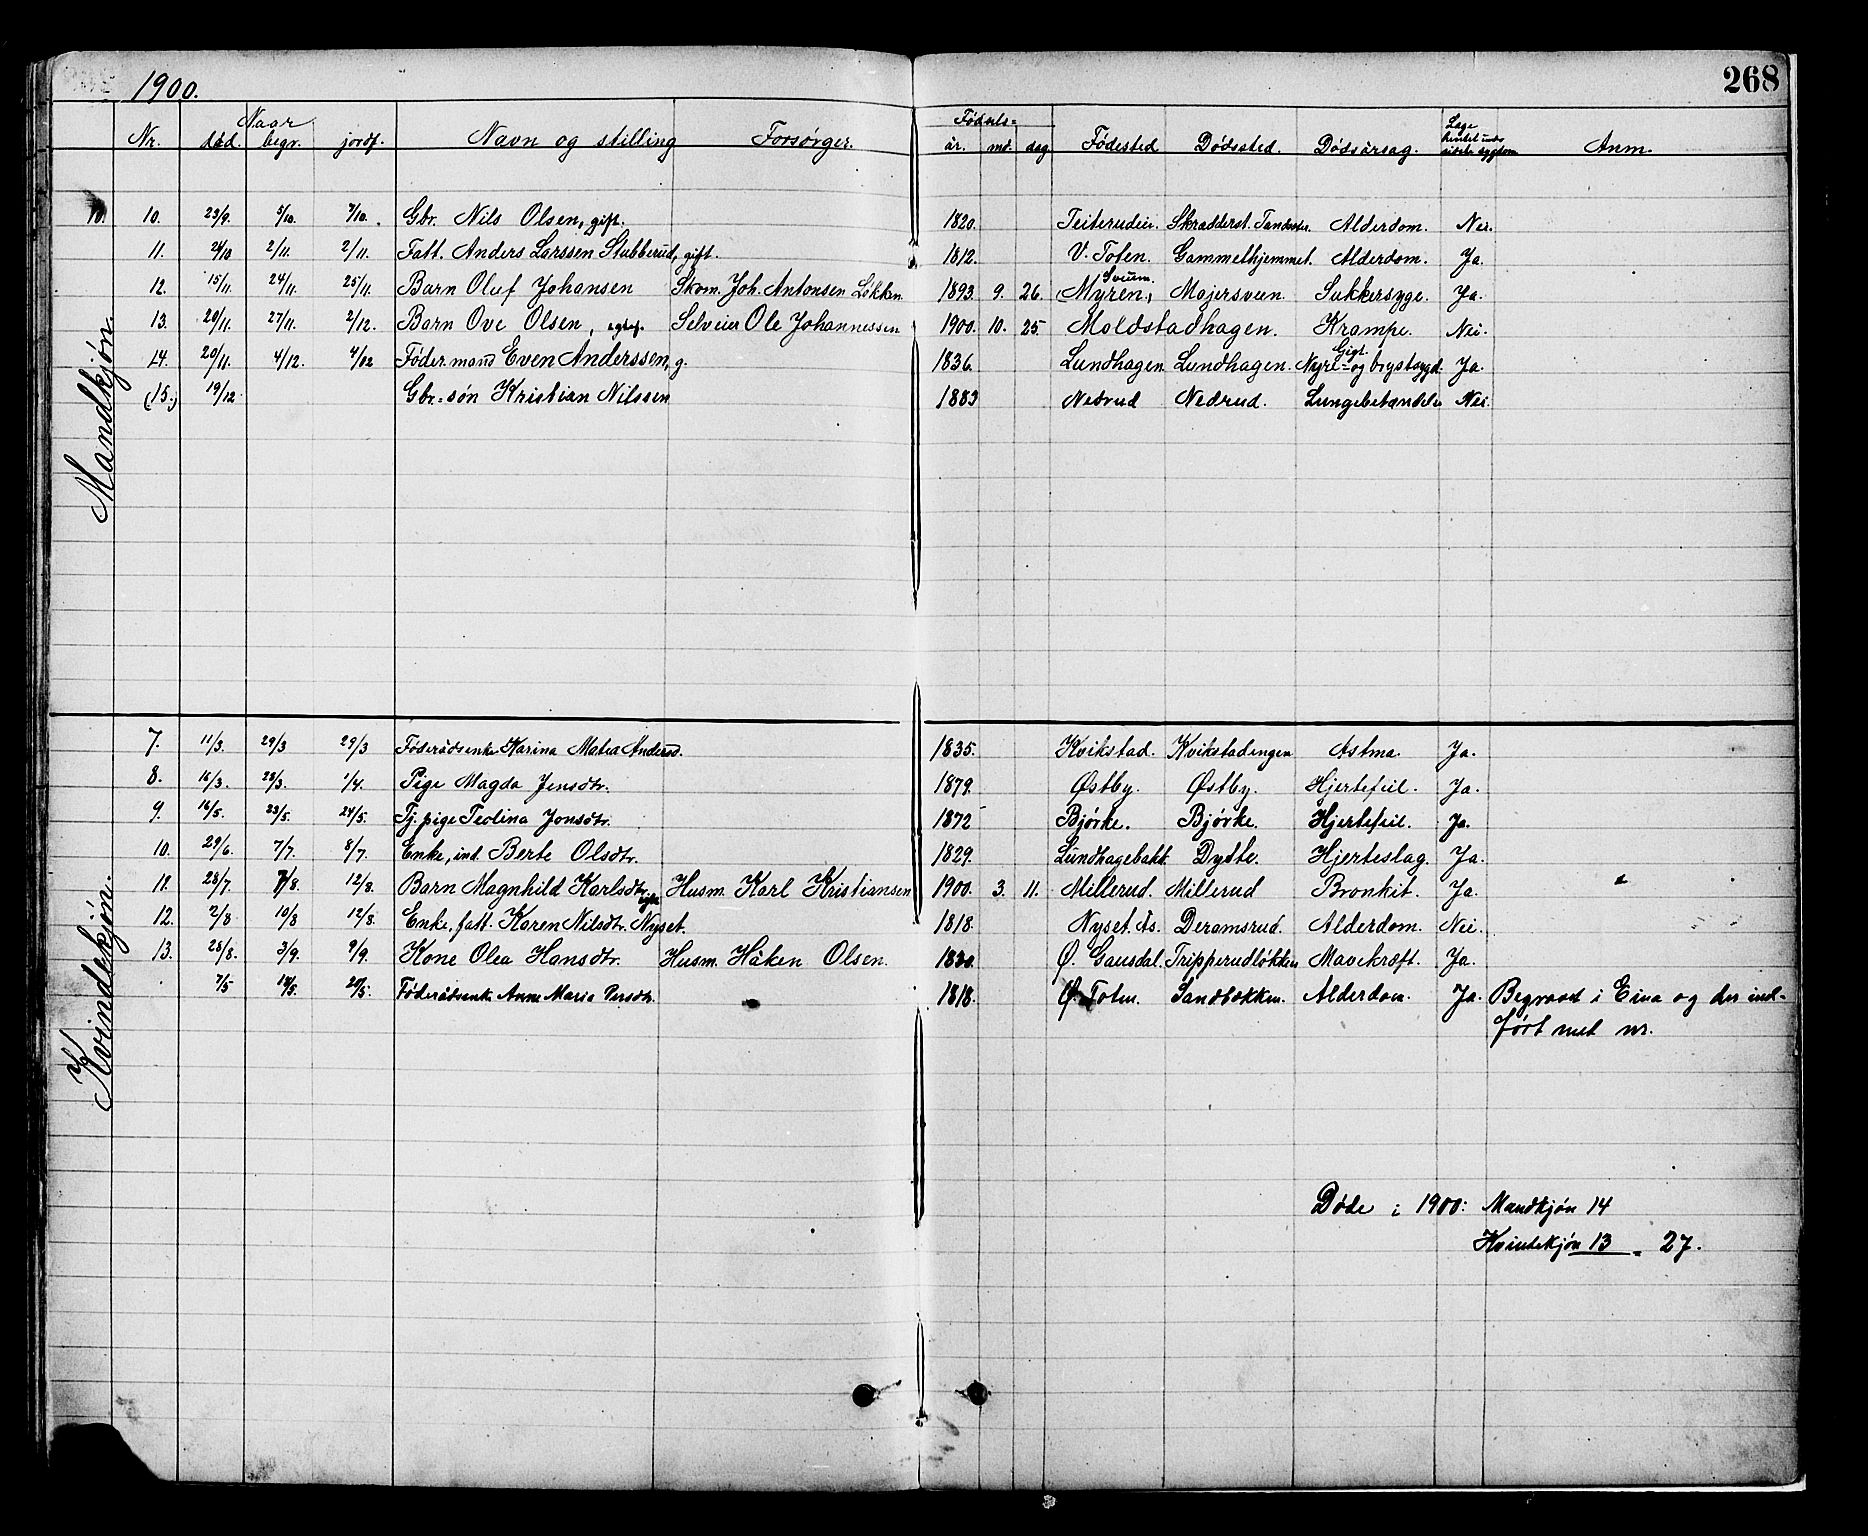 1900.
268
Nr. Naar død. begr. jordf. Navn og stilling Forsørger. Fødsels= år. md. dag Fødested Dødssted. Dødsårsag. Anm.
Mandkjøn.
10. 10. 23/9. 5/10. 7/10. Gbr. Nils Olsen, gift. 1820. Teiterudeie. Skrædderst. Alderdom. Nei.
11. 24/10 2/11. 2/11. Fatt. Anders Larssen Stubberud, gift. 1812. V. Toten. Gammelhjemmet. Alderdom. Ja.
12. 15/11. 24/11. 25/11. Barn Oluf Johansen Skom. Joh. Antonsen Løkken 1893. 9. 26. Myren, Sveum. Majersveen. Sukkersyge. Ja.
13. 20/11. 27/11. 2/12. Barn Ove Olsen, Selveier Ole Johannessen 1900. 10. 25. Moldstadhagen. Krampe. Nei.
14. 20/11. 4/12. 4/12 Føder.mand Even Anderssen, g. 1836. Lundhagen Lundhagen. Gigt. Nyre- og brystsygd. Ja.
(15.) 19/12. Gbr.=søn Kristian Nilssen 1883 Nedrud Nedrud. Lungebetændelse Nei.
Kvindekjøn.
7. 11/3. 29/3 29/3 Føderådsenke Karina Matea Andersd. 1835. Kvikstad. Kvikstadengen Astma. Ja.
8. 16/3. 28/3. 1/4. Pige Magda Jensdtr. 1879. Østby. Østby. Hjertefeil. Ja.
9. 16/5. 23/5. 24/5. Tj. pige Teolina Jonsdtr. 1872 Bjørke. Bjørke. Hjertefeil. Ja.
10. 29/6. 7/7. 8/7. Enke, ind. Berte Olsdtr. 1829. Lundhagebakk. Dyste. Hjerteslag. Ja.
11. 28/7. 7/8. 12/8. Barn Magnhild Karlsdtr. Husm. Karl Kristiansen 1900. 3. 11. Millerud. Millerud Bronkit. Ja.
12. 2/8. 10/8 12/8. Enke, fatt. Karen Nilsdtr. Nyset. 1818. Nyset. Ås. Deramsrud. Alderdom. Nei.
13. 28/8. 3/9. 9/9. Kone Olea Hansdtr. Husm. Håken Olsen. 1830. Ø. Gausdal. Tripperudløkken Mavekræft. Ja.
7/5 18/5. 20/5. Føderådsenke Anne Maria Persdtr. 1818. Ø. Toten. Sandbækken. Alderdom. Ja. Begravet i Eina og der ind-
ført med nr.
Døde i 1900: Mandkjøn 14
Kvindekjøn 13 = 27.